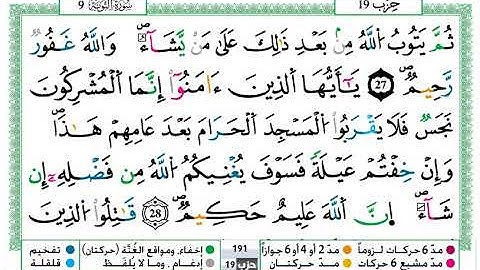 سُورَةُ التَّوْبَةِ 9
حِزْب 19
ثُمَّ يَتُوبُ اللَّهُ مِنۢ بَعْدِ ذَٰلِكَ عَلَىٰ مَن يَشَآءُ ۗ وَاللَّهُ غَفُورٌ
رَّحِيمٌ 27 يَٰٓأَيُّهَا الَّذِينَ ءَامَنُوٓا۟ إِنَّمَا الْمُشْرِكُونَ
نَجَسٌ فَلَا يَقْرَبُوا۟ الْمَسْجِدَ الْحَرَامَ بَعْدَ عَامِهِمْ هَٰذَا ۚ
وَإِنْ خِفْتُمْ عَيْلَةً فَسَوْفَ يُغْنِيكُمُ اللَّهُ مِن فَضْلِهِۦٓ إِن
شَآءَ ۚ إِنَّ اللَّهَ عَلِيمٌ حَكِيمٌ 28 قَٰتِلُوا۟ الَّذِينَ
مدّ 6 حركات لزوماً مدّ 2 أو 4 أو 6 جوازاً 191 إخفاء، ومواقع الغُنَّة (حركتان) تفخيم
مدّ مشبع 6 حركات مدّ حركتان حزب 19 إدغام، وما لا يُلفَظ قلقلة